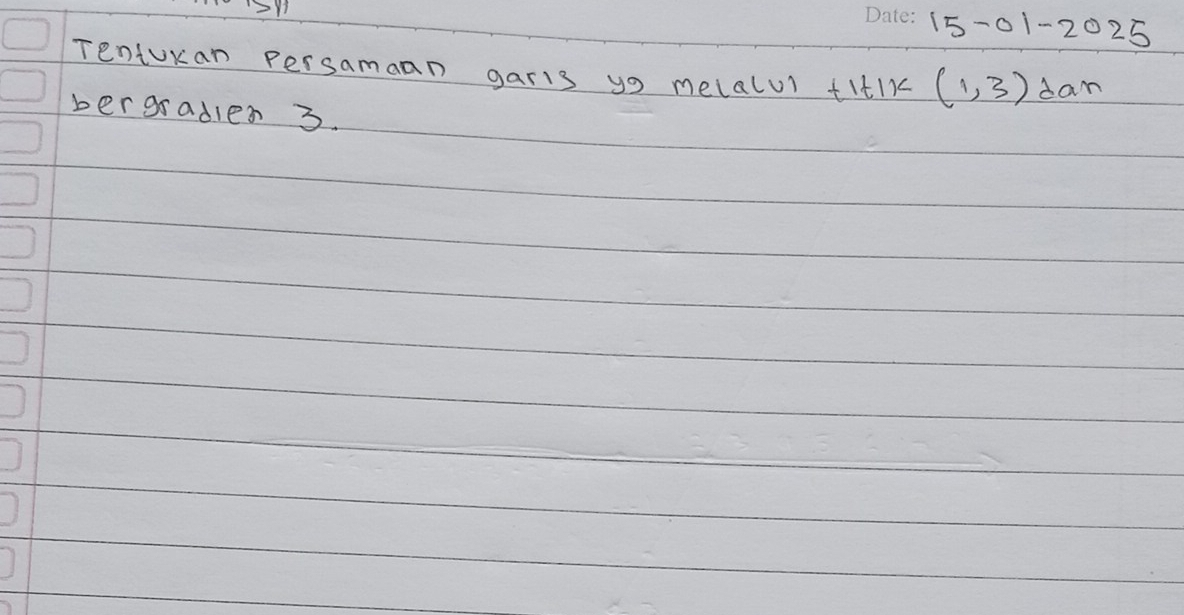 Date: 15-01-2025
Tentukan Persamaan garis yg melalui titik (1,3) dan
bergradien 3.